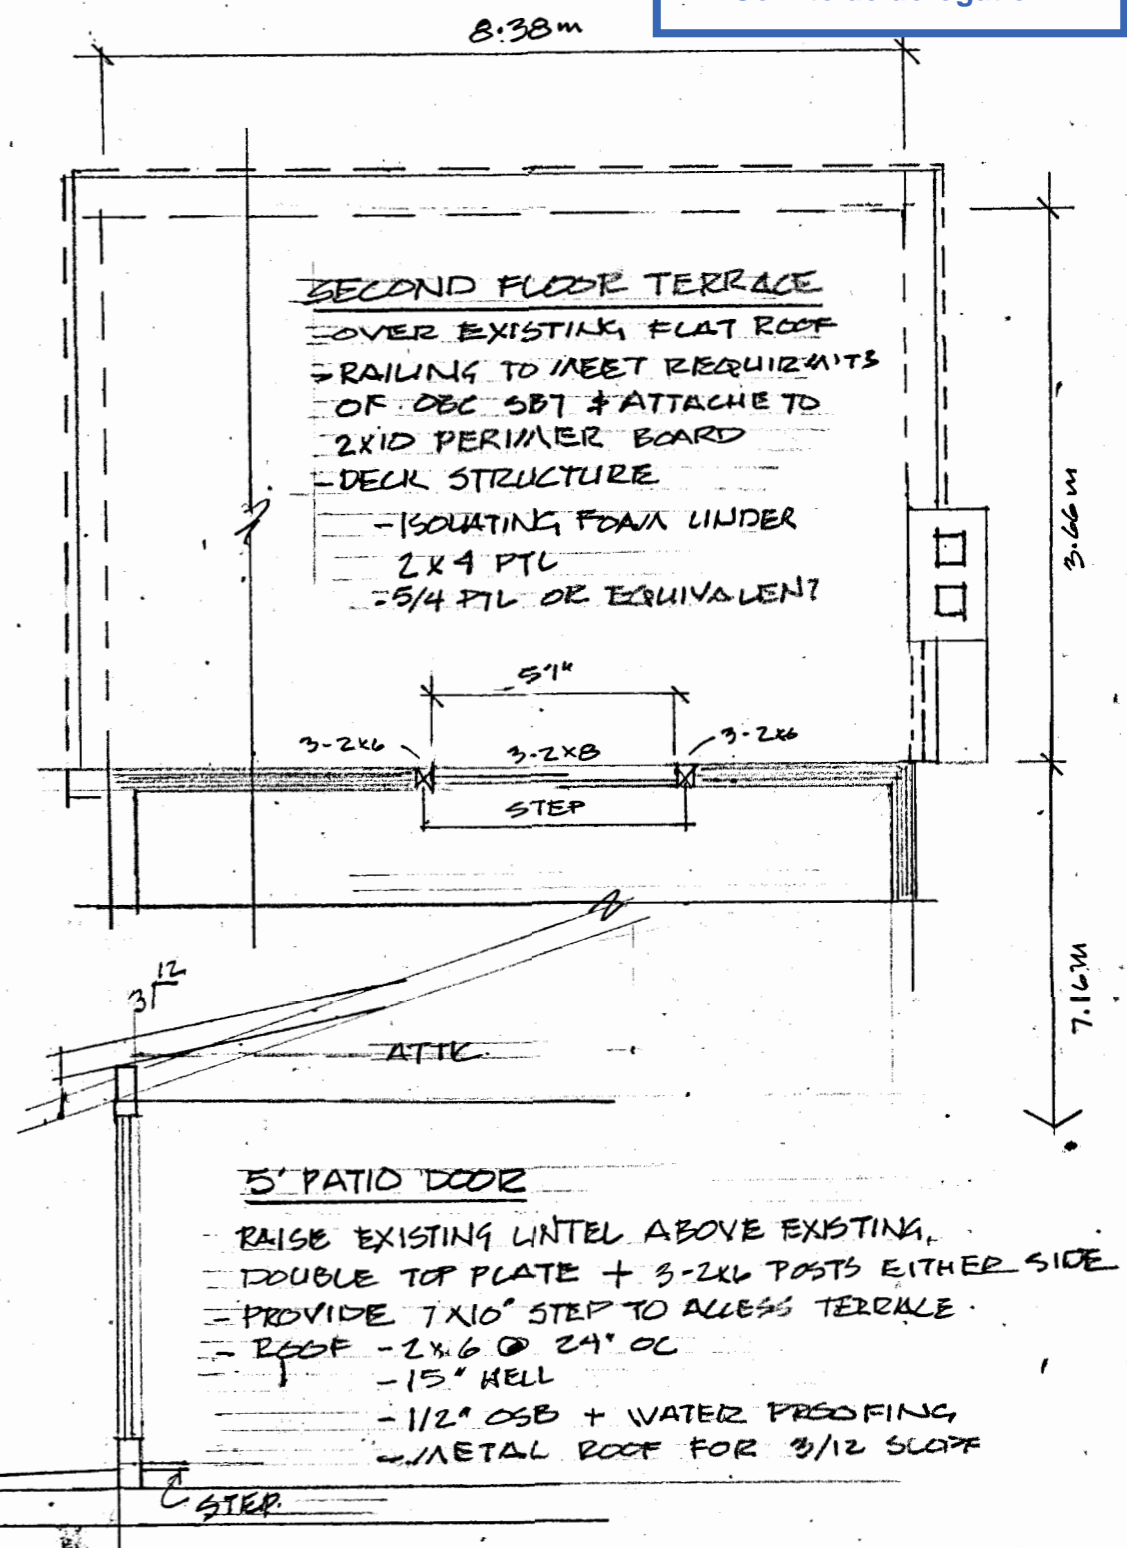 8.38m
SECOND FLOOR TERRACE
- OVER EXISTING FLAT ROOF
- RAILING TO MEET REQUIRMNTS
OF OBC SB7 & ATTACHE TO
2X10 PERIMER BOARD
- DECK STRUCTURE
- ISOLATING FOAM UNDER
2 X 4 PTL
- 5/4 PTL OR EQUIVALENT
3.66m
3-2x6
3-2x8
3-2x6
STEP
7.16m
3 12
ATTIC
5' PATIO DOOR
- RAISE EXISTING LINTEL ABOVE EXISTING,
DOUBLE TOP PLATE + 3-2x6 POSTS EITHER SIDE
- PROVIDE 7X10" STEP TO ACCESS TERRACE.
- ROOF - 2x6 @ 24" OC
- 15" HELL
- 1/2" OSB + WATER PROOFING
- METAL ROOF FOR 3/12 SLOPE
STEP.